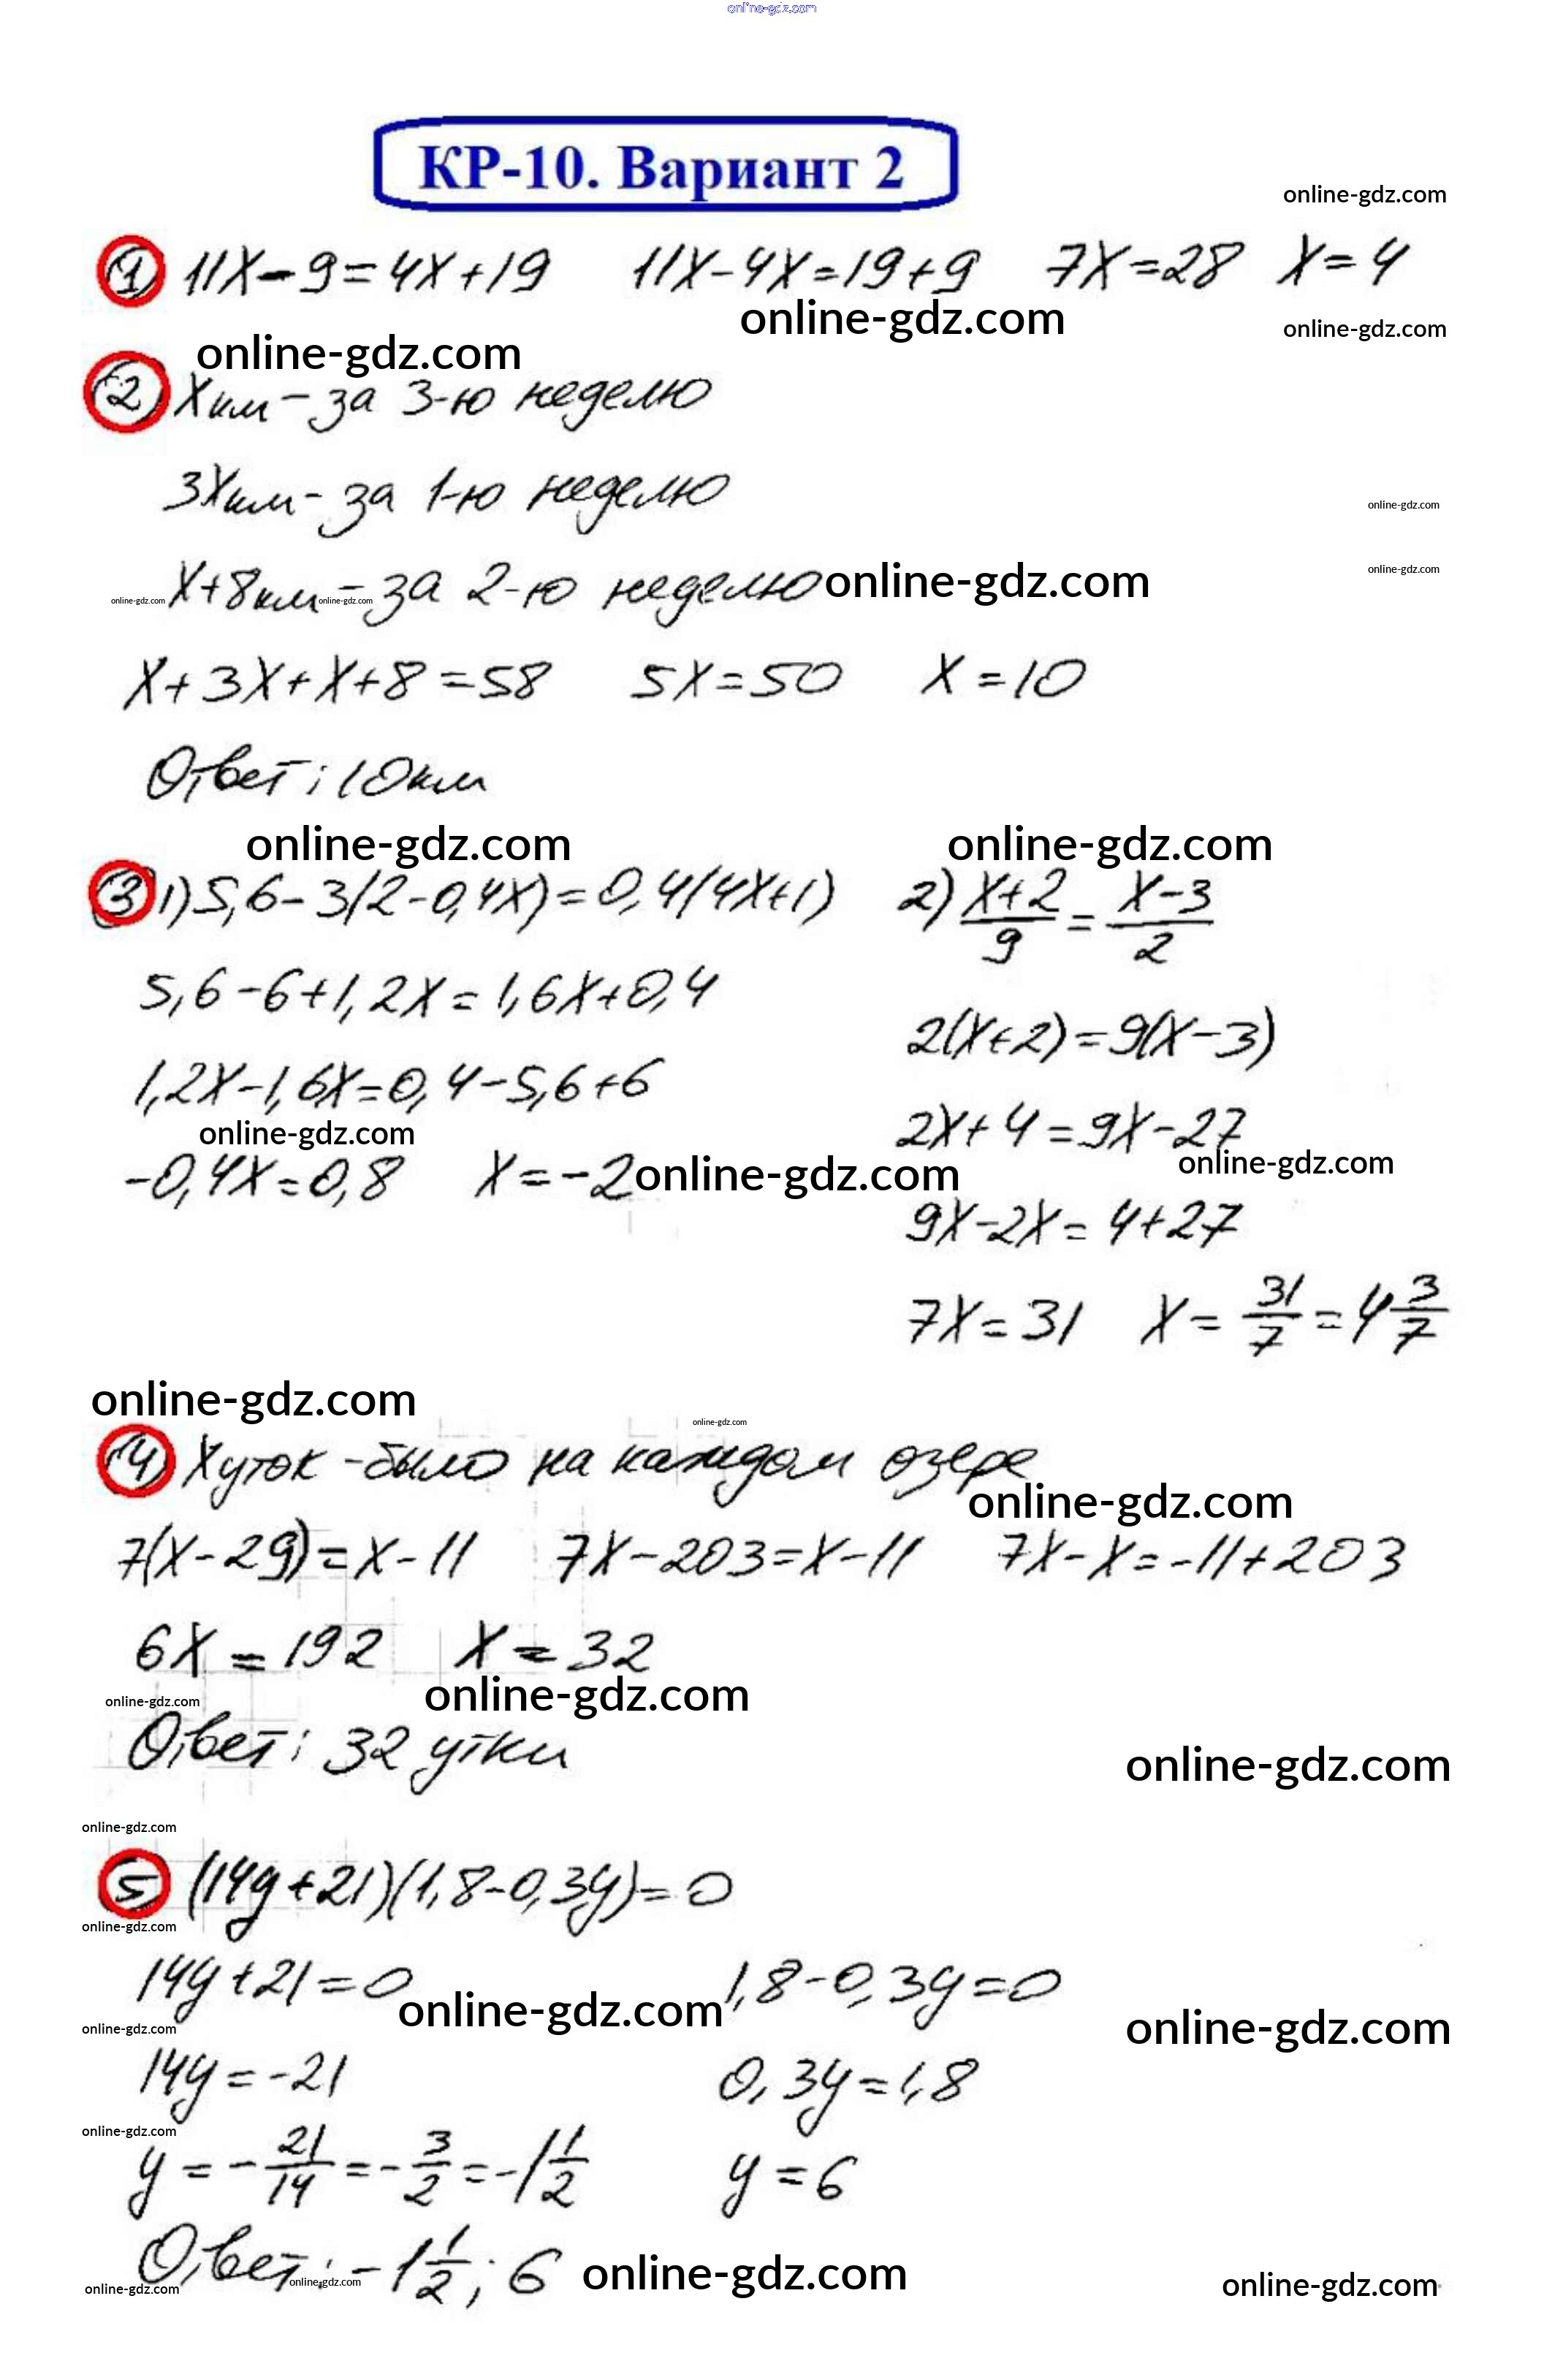 online-gdz.com
КР-10. Вариант 2
online-gdz.com
1) 11x-9=4x+19 11x-4x=19+9 7x=28 x=4
online-gdz.com
online-gdz.com
online-gdz.com
2) x км - за 3-ю неделю
3x км - за 1-ю неделю
online-gdz.com
online-gdz.com
x+8 км - за 2-ю неделю
online-gdz.com
online-gdz.com
online-gdz.com
x+3x+x+8=58 5x=50 x=10
Ответ: 10 км
online-gdz.com
online-gdz.com
3) 1) 5,6-3(2-0,4x)=0,4(4x+1)
5,6-6+1,2x=1,6x+0,4
1,2x-1,6x=0,4-5,6+6
online-gdz.com
-0,4x=0,8 x=-2
online-gdz.com
2) \frac{x+2}{9}=\frac{x-3}{2}
2(x+2)=9(x-3)
2x+4=9x-27
online-gdz.com
9x-2x=4+27
7x=31 x=\frac{31}{7}=4\frac{3}{7}
online-gdz.com
online-gdz.com
4) x уток - было на каждом озере
online-gdz.com
7(x-29)=x-11 7x-203=x-11 7x-x=-11+203
6x=192 x=32
online-gdz.com
online-gdz.com
Ответ: 32 утки
online-gdz.com
online-gdz.com
5) (14y+21)(1,8-0,3y)=0
online-gdz.com
14y+21=0 1,8-0,3y=0
online-gdz.com
online-gdz.com
online-gdz.com
14y=-21 0,3y=1,8
online-gdz.com
y=-\frac{21}{14}=-\frac{3}{2}=-1\frac{1}{2} y=6
Ответ: -1\frac{1}{2}; 6
online-gdz.com
online-gdz.com
online-gdz.com
online-gdz.com